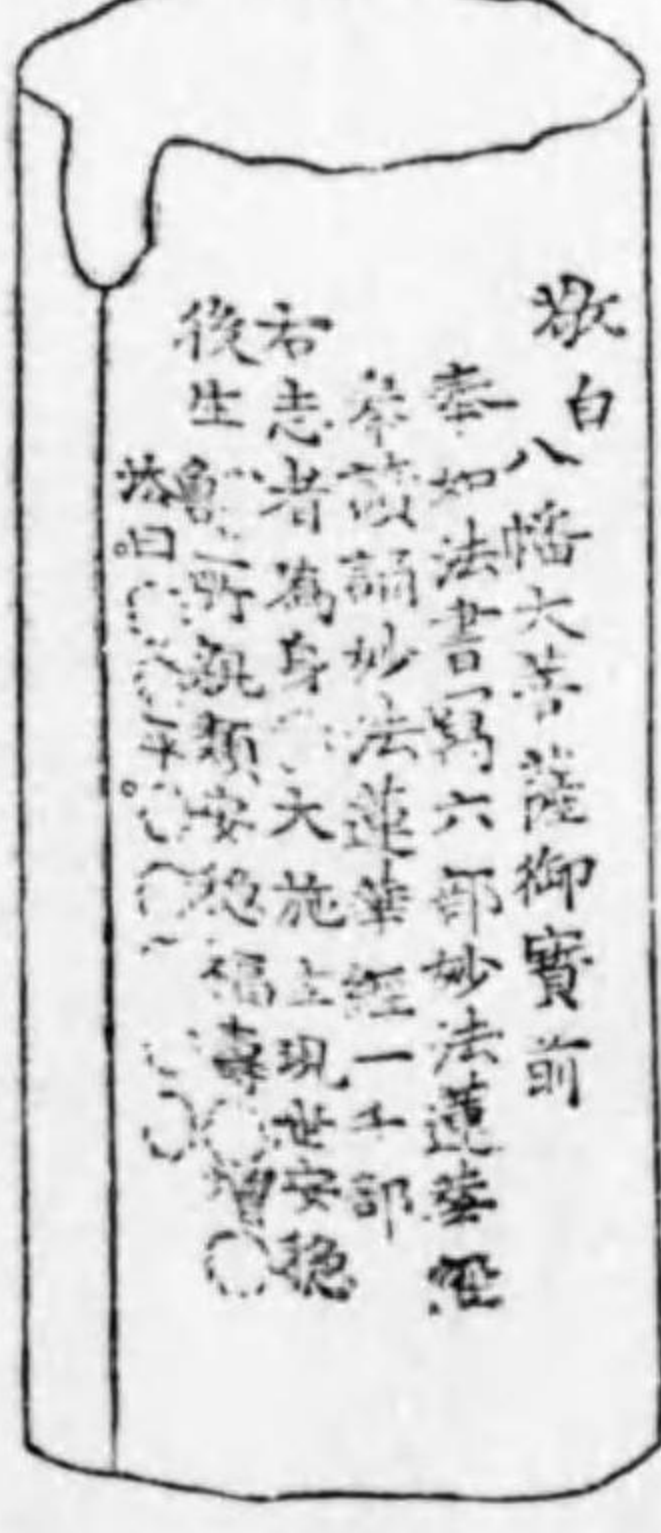 敬白
八幡大菩薩御寳前
奉如法書写六部妙法蓮華経
奉讀誦妙法蓮華經一千部
右志者為身大施主現世安穏
後生所親類安穏福壽増
年